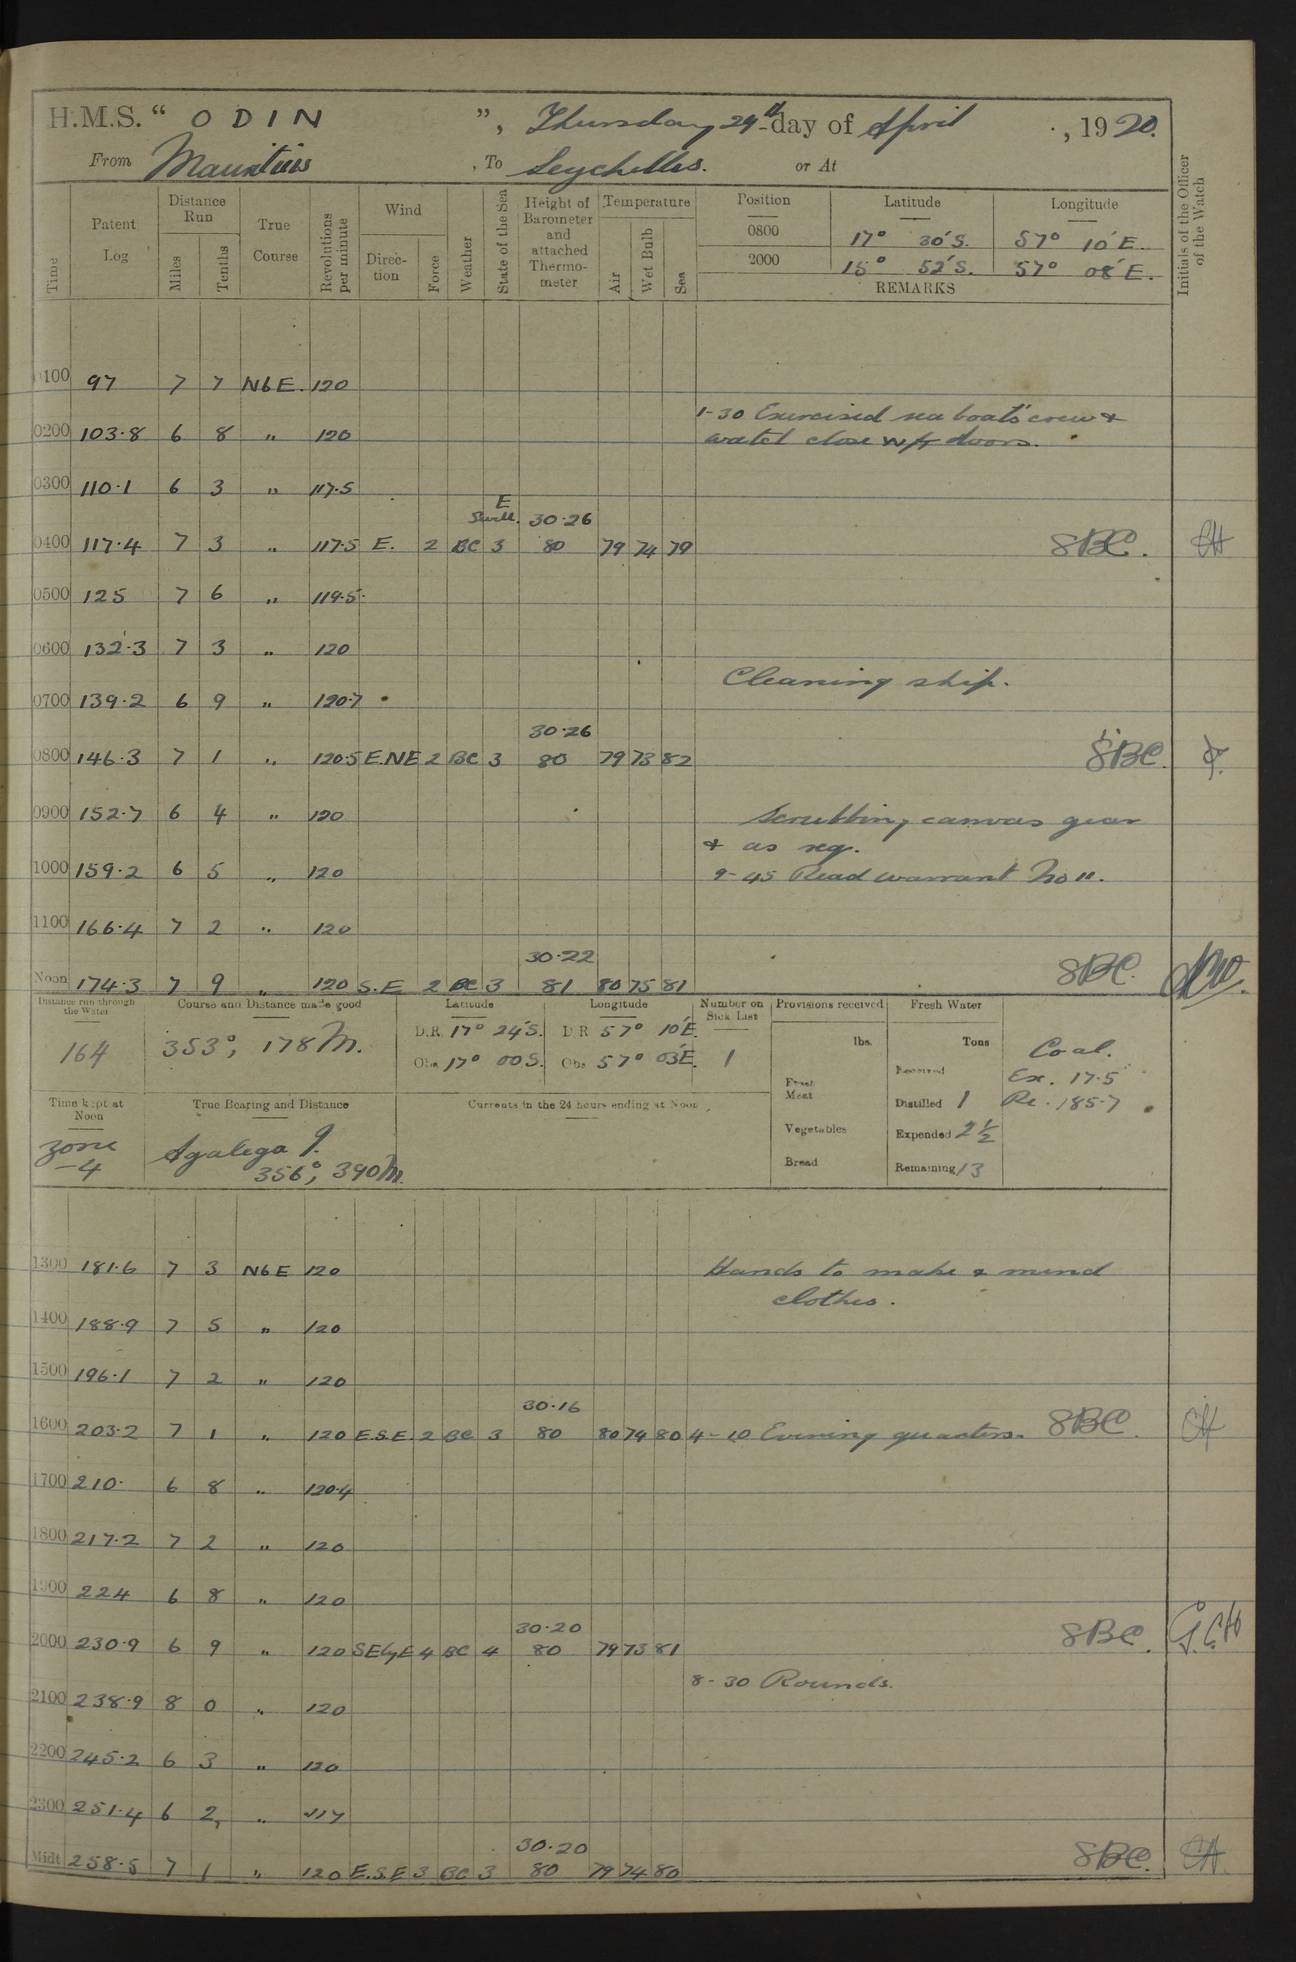 H.M.S. “ ODIN ”, Thursday 29th day of April , 1920.
From Mauritius , To Seychelles. or At
Time Patent Log Distance Run Miles Tenths True Course Revolutions per minute Wind Direction Force Weather State of the Sea Height of Barometer and attached Thermometer Temperature Air Wet Bulb Sea Position Latitude Longitude Initials of the Officer of the Watch
0800 17° 30'S. 57° 10'E.
2000 15° 52'S. 57° 08'E.
REMARKS
0100 97 7 7 NbE. 120
1-30 Exercised sea boats crew &
0200 103.8 6 8 " 120 watch close w/t doors.
0300 110.1 6 3 " 117.5
E
Swell. 30.26
0400 117.4 7 3 " 117.5 E. 2 BC 3 80 79 74 79 8BC.
0500 125 7 6 " 119.5
0600 132.3 7 3 " 120
Cleaning ship.
0700 139.2 6 9 " 120.7
30.26
0800 146.3 7 1 " 120.5 E.NE 2 BC 3 80 79 73 82 8BC.
0900 152.7 6 4 " 120 Scrubbing canvas gear
& as req.
1000 159.2 6 5 " 120 9-45 Read warrant No 11.
1100 166.4 7 2 " 120
30.22
Noon 174.3 7 9 " 120 S.E 2 BC 3 81 80 75 81 8BC.
Distance run through the Water Course and Distance made good Latitude Longitude Number on Sick List Provisions received Fresh Water
164 353°, 178M. D.R. 17° 24'S. D.R 57° 10'E. 1 lbs. Tons Coal.
Obs 17° 00S. Obs 57° 03'E. Received Ex. 17.5
Fresh Meat Distilled 1 Re. 185.7
Time kept at Noon True Bearing and Distance Currents in the 24 hours ending at Noon
Vegetables Expended 2½
zone -4 Agalega I.
356°, 390M. Bread Remaining 13
1300 181.6 7 3 NbE 120 Hands to make & mend
clothes.
1400 188.9 7 5 " 120
1500 196.1 7 2 " 120
30.16
1600 203.2 7 1 " 120 E.S.E. 2 BC 3 80 80 74 80 4-10 Evening quarters. 8BC.
1700 210. 6 8 " 120.4
1800 217.2 7 2 " 120
1900 224 6 8 " 120
30.20
2000 230.9 6 9 " 120 SEbyE 4 BC 4 80 79 73 81 8BC.
8-30 Rounds.
2100 238.9 8 0 " 120
2200 245.2 6 3 " 120
2300 251.4 6 2 " 117
30.20
Midt 258.5 7 1 " 120 E.S.E 3 BC 3 80 79 74 80 8BC.